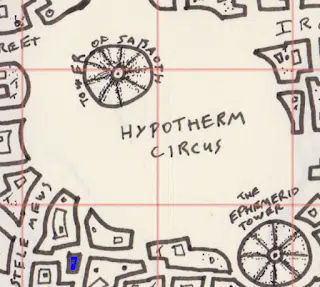 IR
REET
TOWER OF SABAOTH
HYPOTHERM
CIRCUS
THE
EPHEMERID
TOWER
STELE MEWS